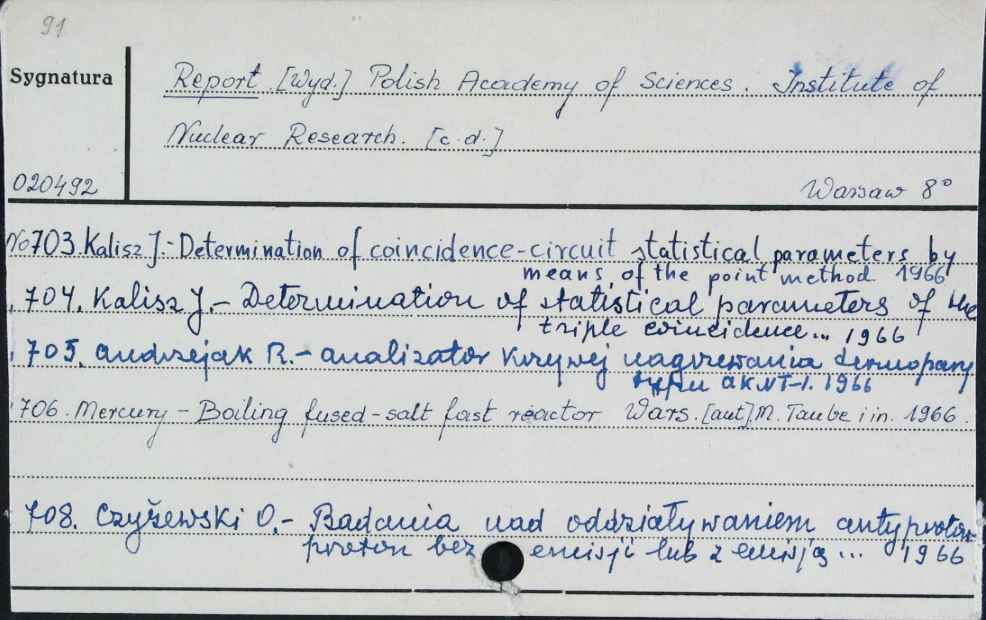 91
Sygnatura
Report [Wyd.] Polish Academy of Sciences. Institute of
Nuclear Research. [c.d.]
020492
Warsaw 8°
No 703. Kalisz J.- Determination of coincidence-circuit statistical parameters by
means of the point method. 1966
704. Kalisz J.- Determination of statistical parameters of the
triple coincidence... 1966
705. Andrzejak R.- analizator krzywej nagrzewania termopary
typu AKNT-1. 1966
706. Mercury - Boiling fused-salt fast reactor Wars. [aut] M. Taube i in. 1966.
708. Czyżewski O.- Badania nad oddziaływaniem antyproton-
proton bez emisji lub z emisją ... 1966